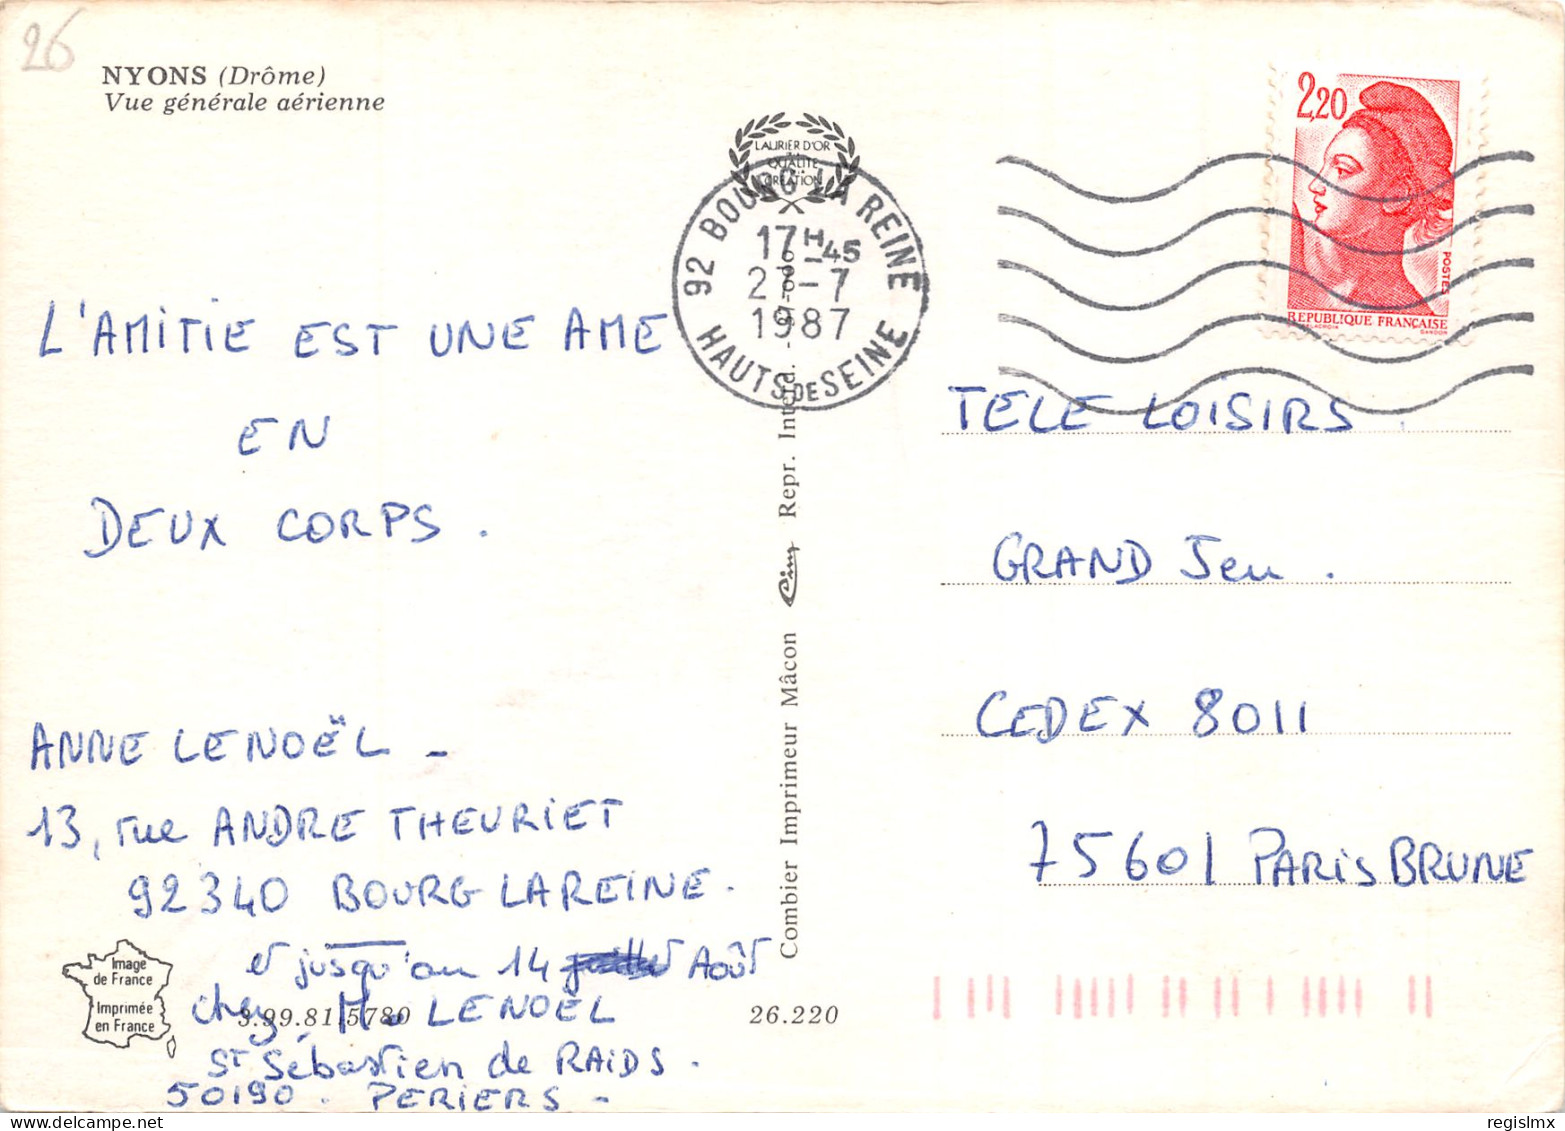 26
NYONS (Drôme)
Vue générale aérienne
LAURIER D'OR
QUALITE
CREATION
92 BOURG LA REINE
17H-45
-7
1987
HAUTS DE SEINE
2,20
POSTES
REPUBLIQUE FRANÇAISE
DELACROIX GANDON
L'AMITIE EST UNE AME
EN
DEUX CORPS.
ANNE LENOËL -
13, rue ANDRE THEURIET
92340 BOURG LAREINE.
et jusqu'au 14 Août
chez M. LENOËL
St Sébastien de RAIDS.
50190. PERIERS -
Image
de France
Imprimée
en France
3.99.81.5780
26.220
Combier Imprimeur Mâcon Cim Repr. Interd.
TELE LOISIRS.
GRAND Jeu.
CEDEX 8011
75601 PARIS BRUNE
regislmx